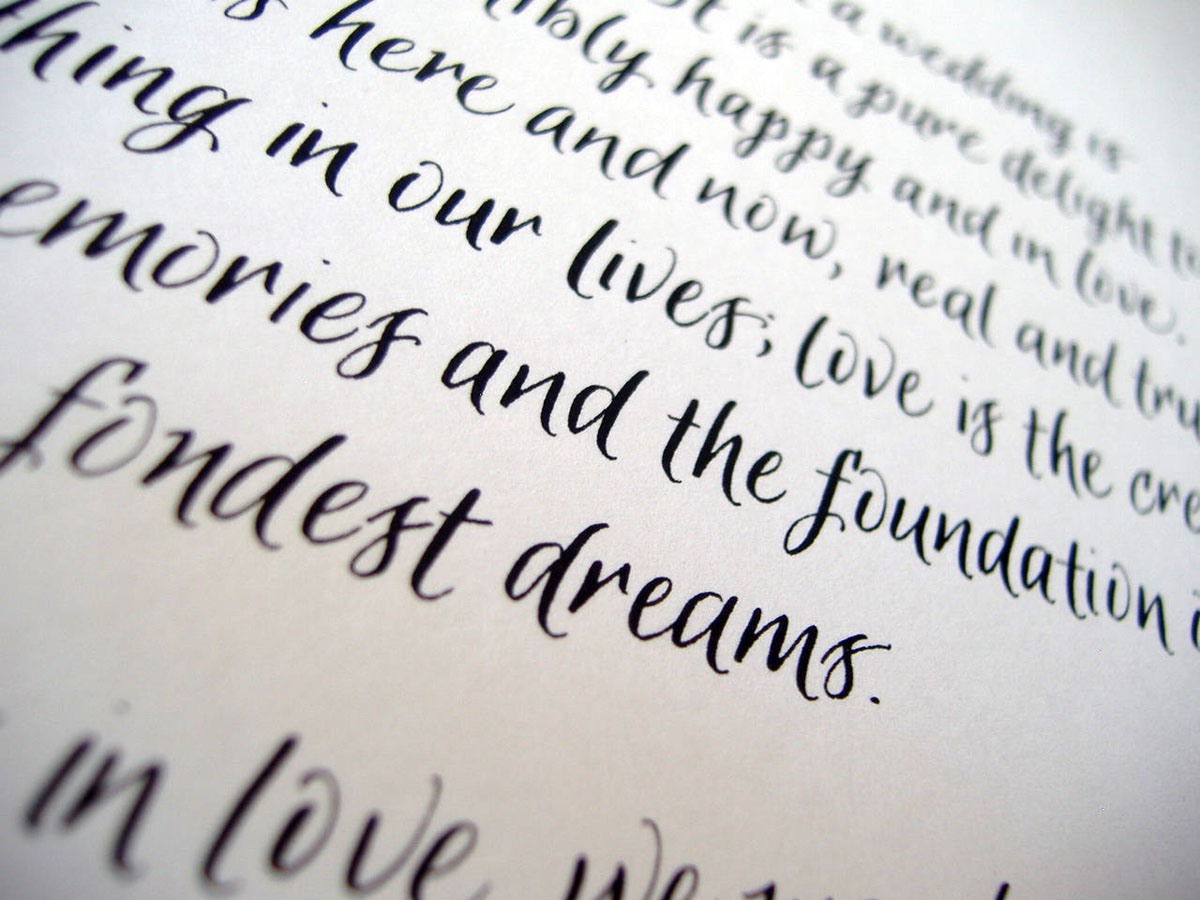 a wedding is
it is a pure delight to
happy and in love.
here and now, real and
thing in our lives; love is the
and the foundation
fondest dreams.
in love